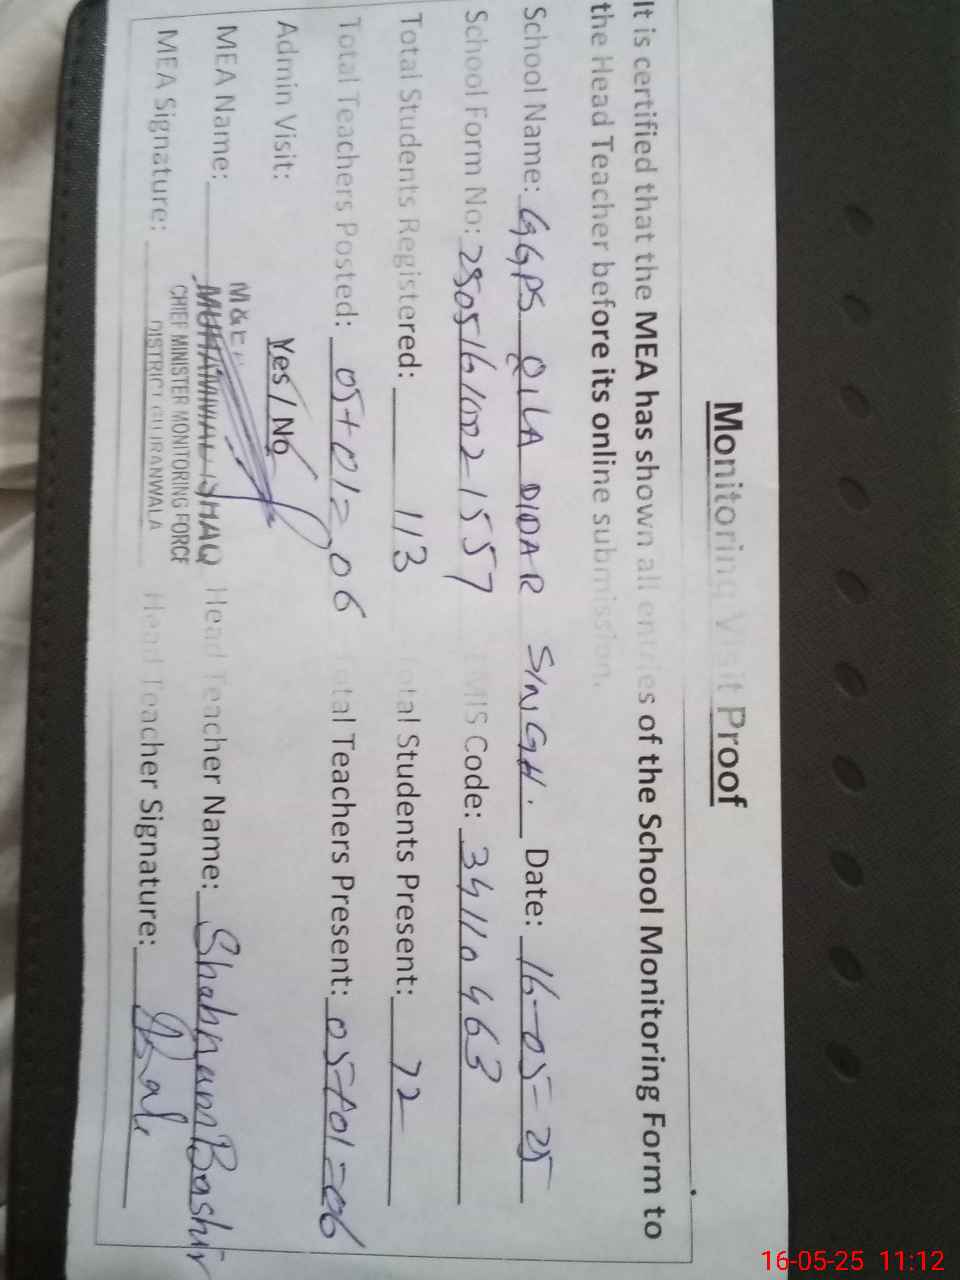 Monitoring Visit Proof
It is certified that the MEA has shown all entries of the School Monitoring Form to
the Head Teacher before its online submission.
School Name: GGPS QILA DIDAR SINGH. Date: 16-05-25
School Form No: 2505161002-1557 EMIS Code: 34110463
Total Students Registered: 113 Total Students Present: 72
Total Teachers Posted: 05+01=06 Total Teachers Present: 05+01=06
Admin Visit: Yes / No
MEA Name: MUHAMMAD ISHAQ Head Teacher Name: Shahnam Bashir
MEA Signature: Head Teacher Signature:
CHIEF MINISTER MONITORING FORCE
DISTRICT GUJRANWALA
16-05-25 11:12